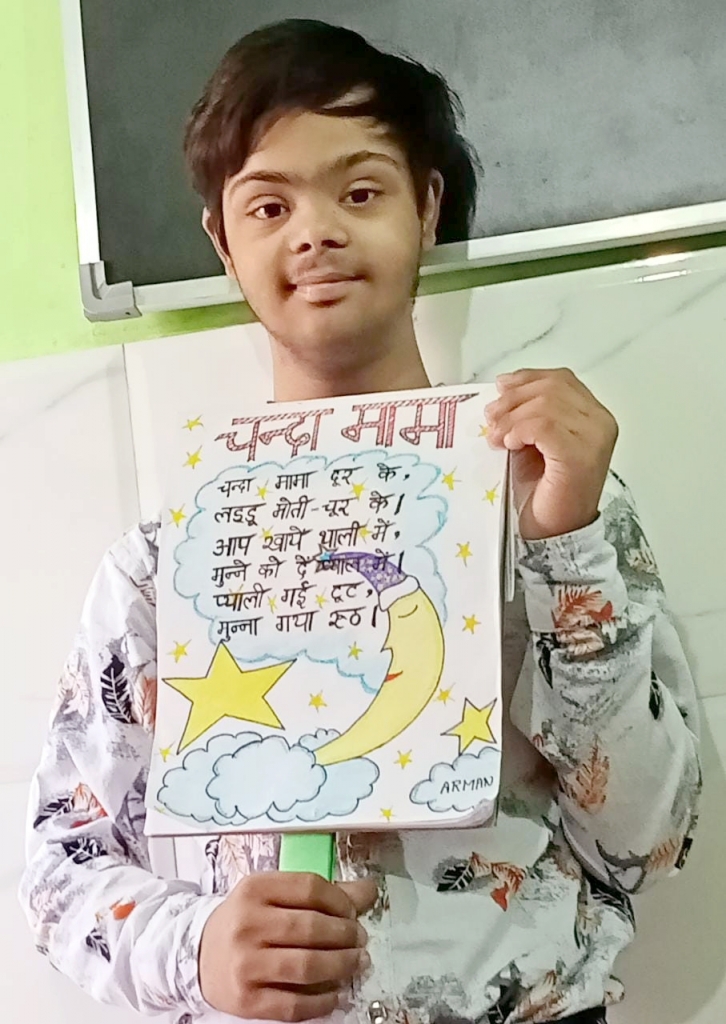 चन्दा मामा
चन्दा मामा दूर के,
लड्डू मोती-चूर के।
आप खाये थाली में,
मुन्ने को दें प्याल में।
प्याली गई टूट,
मुन्ना गया रूठ।
ARMAN